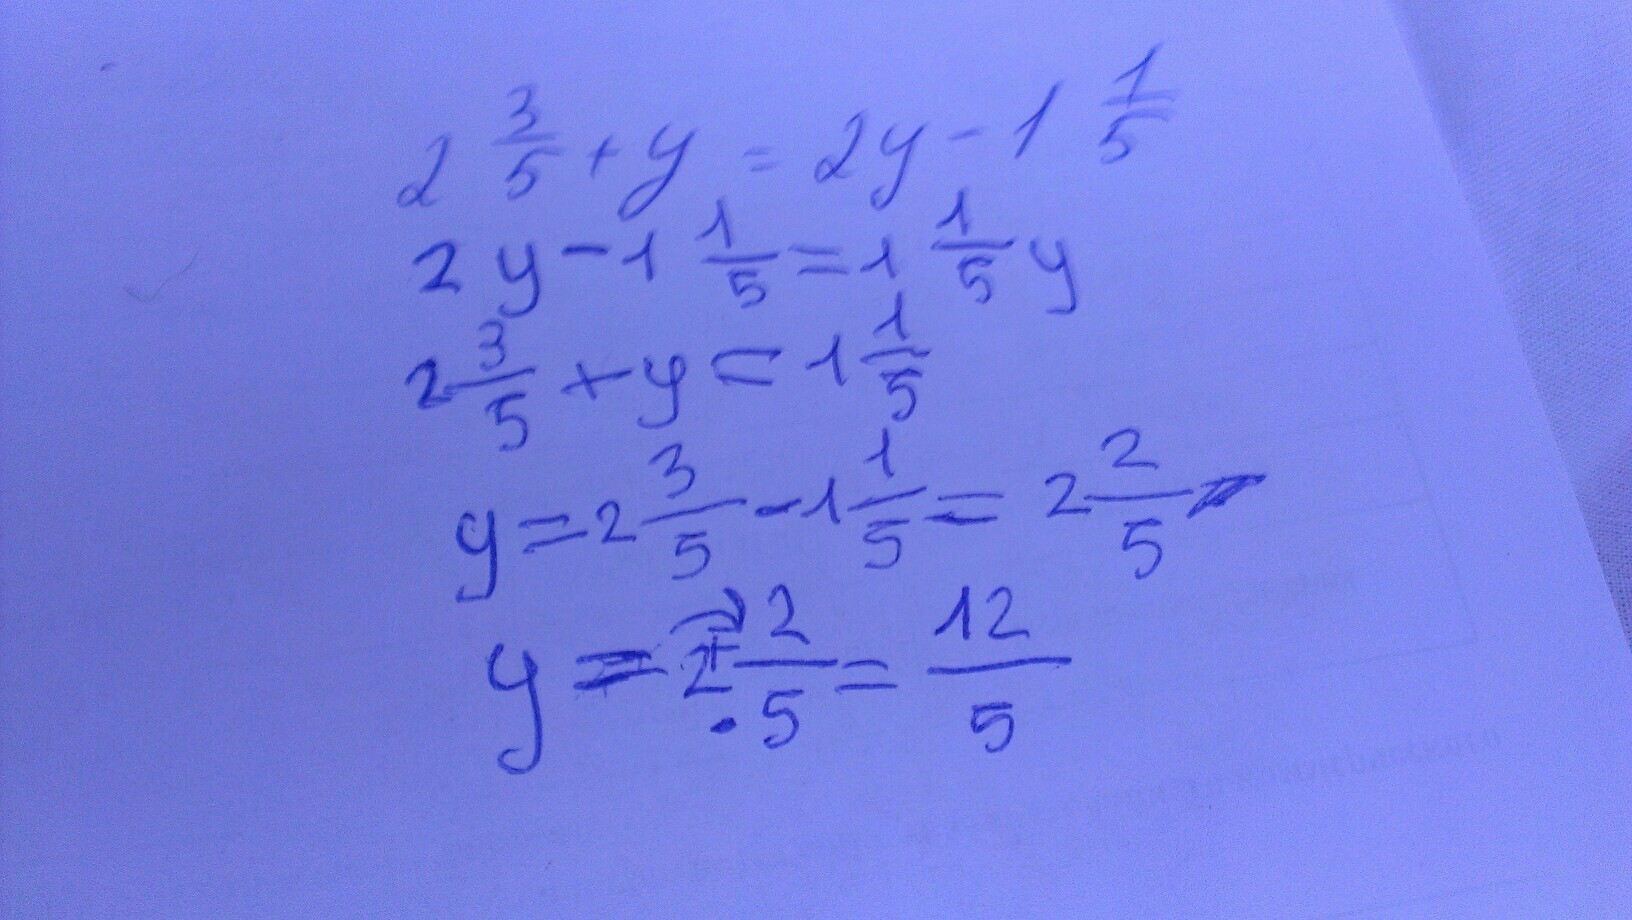 2 3/5 + y = 2y - 1 1/5
2 y - 1 1/5 = 1 1/5 y
2 3/5 + y = 1 1/5
y = 2 3/5 - 1 1/5 = 2 2/5
y = 2 2/5 = 12/5